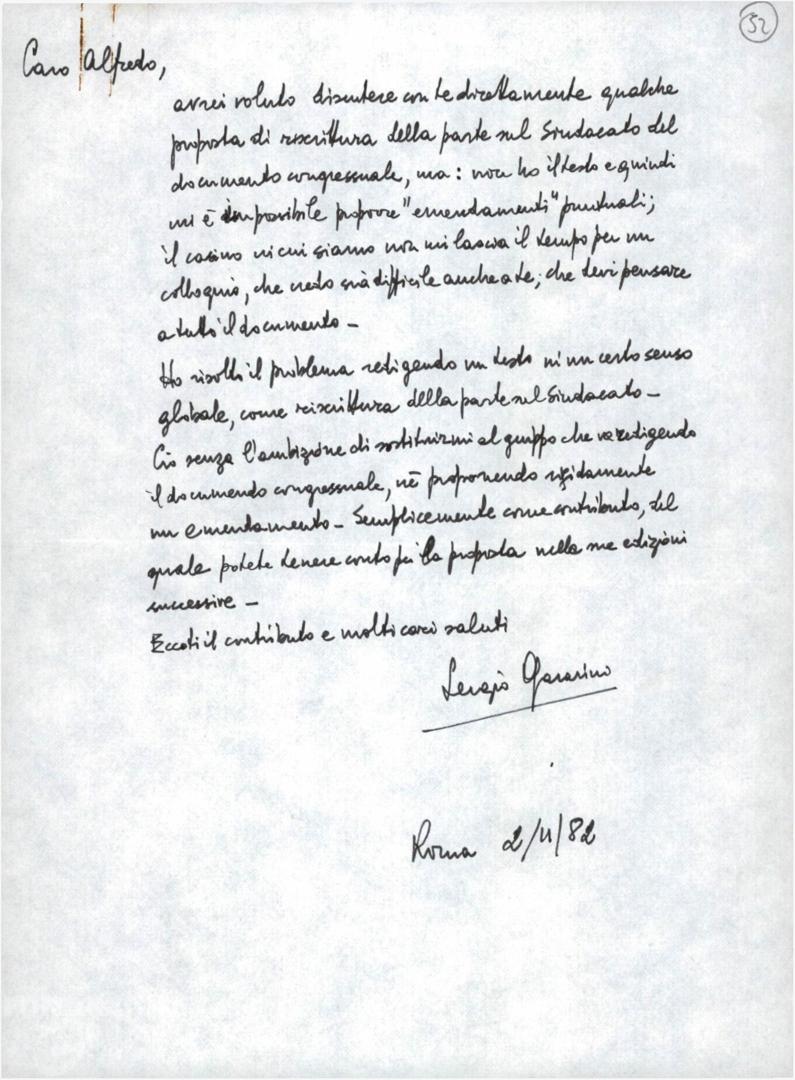 52
Caro Alfredo,
avrei voluto discutere con te direttamente qualche
proposta di riscrittura della parte sul Sindacato del
documento congressuale, ma: non ho il testo e quindi
mi è impossibile proporre "emendamenti" puntuali;
il casino in cui siamo non mi lascia il tempo per un
colloquio, che credo sia difficile anche a te, che devi pensare
a tutto il documento –
Ho risolto il problema redigendo un testo in un certo senso
globale, come riscrittura della parte sul Sindacato –
Ciò senza l'ambizione di sostituirmi al gruppo che va redigendo
il documento congressuale, nè proponendo rigidamente
un emendamento – Semplicemente come contributo, del
quale potete tenere conto per la proposta nelle sue edizioni
successive –
Eccoti il contributo e molti cari saluti
Sergio
Roma 2/11/82